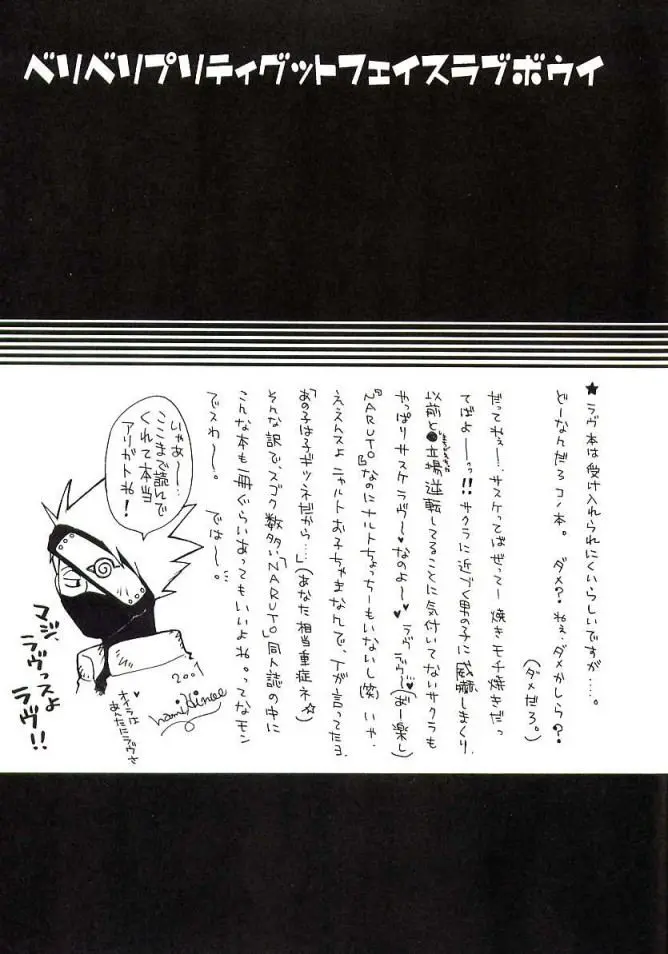 ベリベリプリティグットフェイスラブボウイ
★ラヴ本は受け入れられにくいらしいですが……。
どーなんだろコノ本。ダメ?ねぇ、ダメかしら?
(ダメだろ。)
だってねぇー…サスケってばぜってー焼きモチ焼きだっ
てばよーっ!!サクラに近づく男の子に威嚇しまくり、
以前と立場逆転してることに気付いてないサクラも
やっぱりサスケラヴ〜なのよ〜♥ラヴラヴ〜…♥(あー楽し)
『NARUTO』なのにナルトちょっちーもいないし(笑)いや、
ええんスよニャルトお子ちゃまなんで、Tが言ってたヨ
「あの子は子ギツネだから…」(あなた相当重症ネ☆)
そんな訳で、スゴク数多い「NARUTO」同人誌の中に
こんな本も一冊ぐらいあってもいいよね。ってなモン
でスわ〜。では〜。
いやぁ〜…
ここまで読んで
くれて本当
アリガトね!
マジ、
ラヴっスよ
ラヴ!!
2001
オイラは
あんたにラヴさ